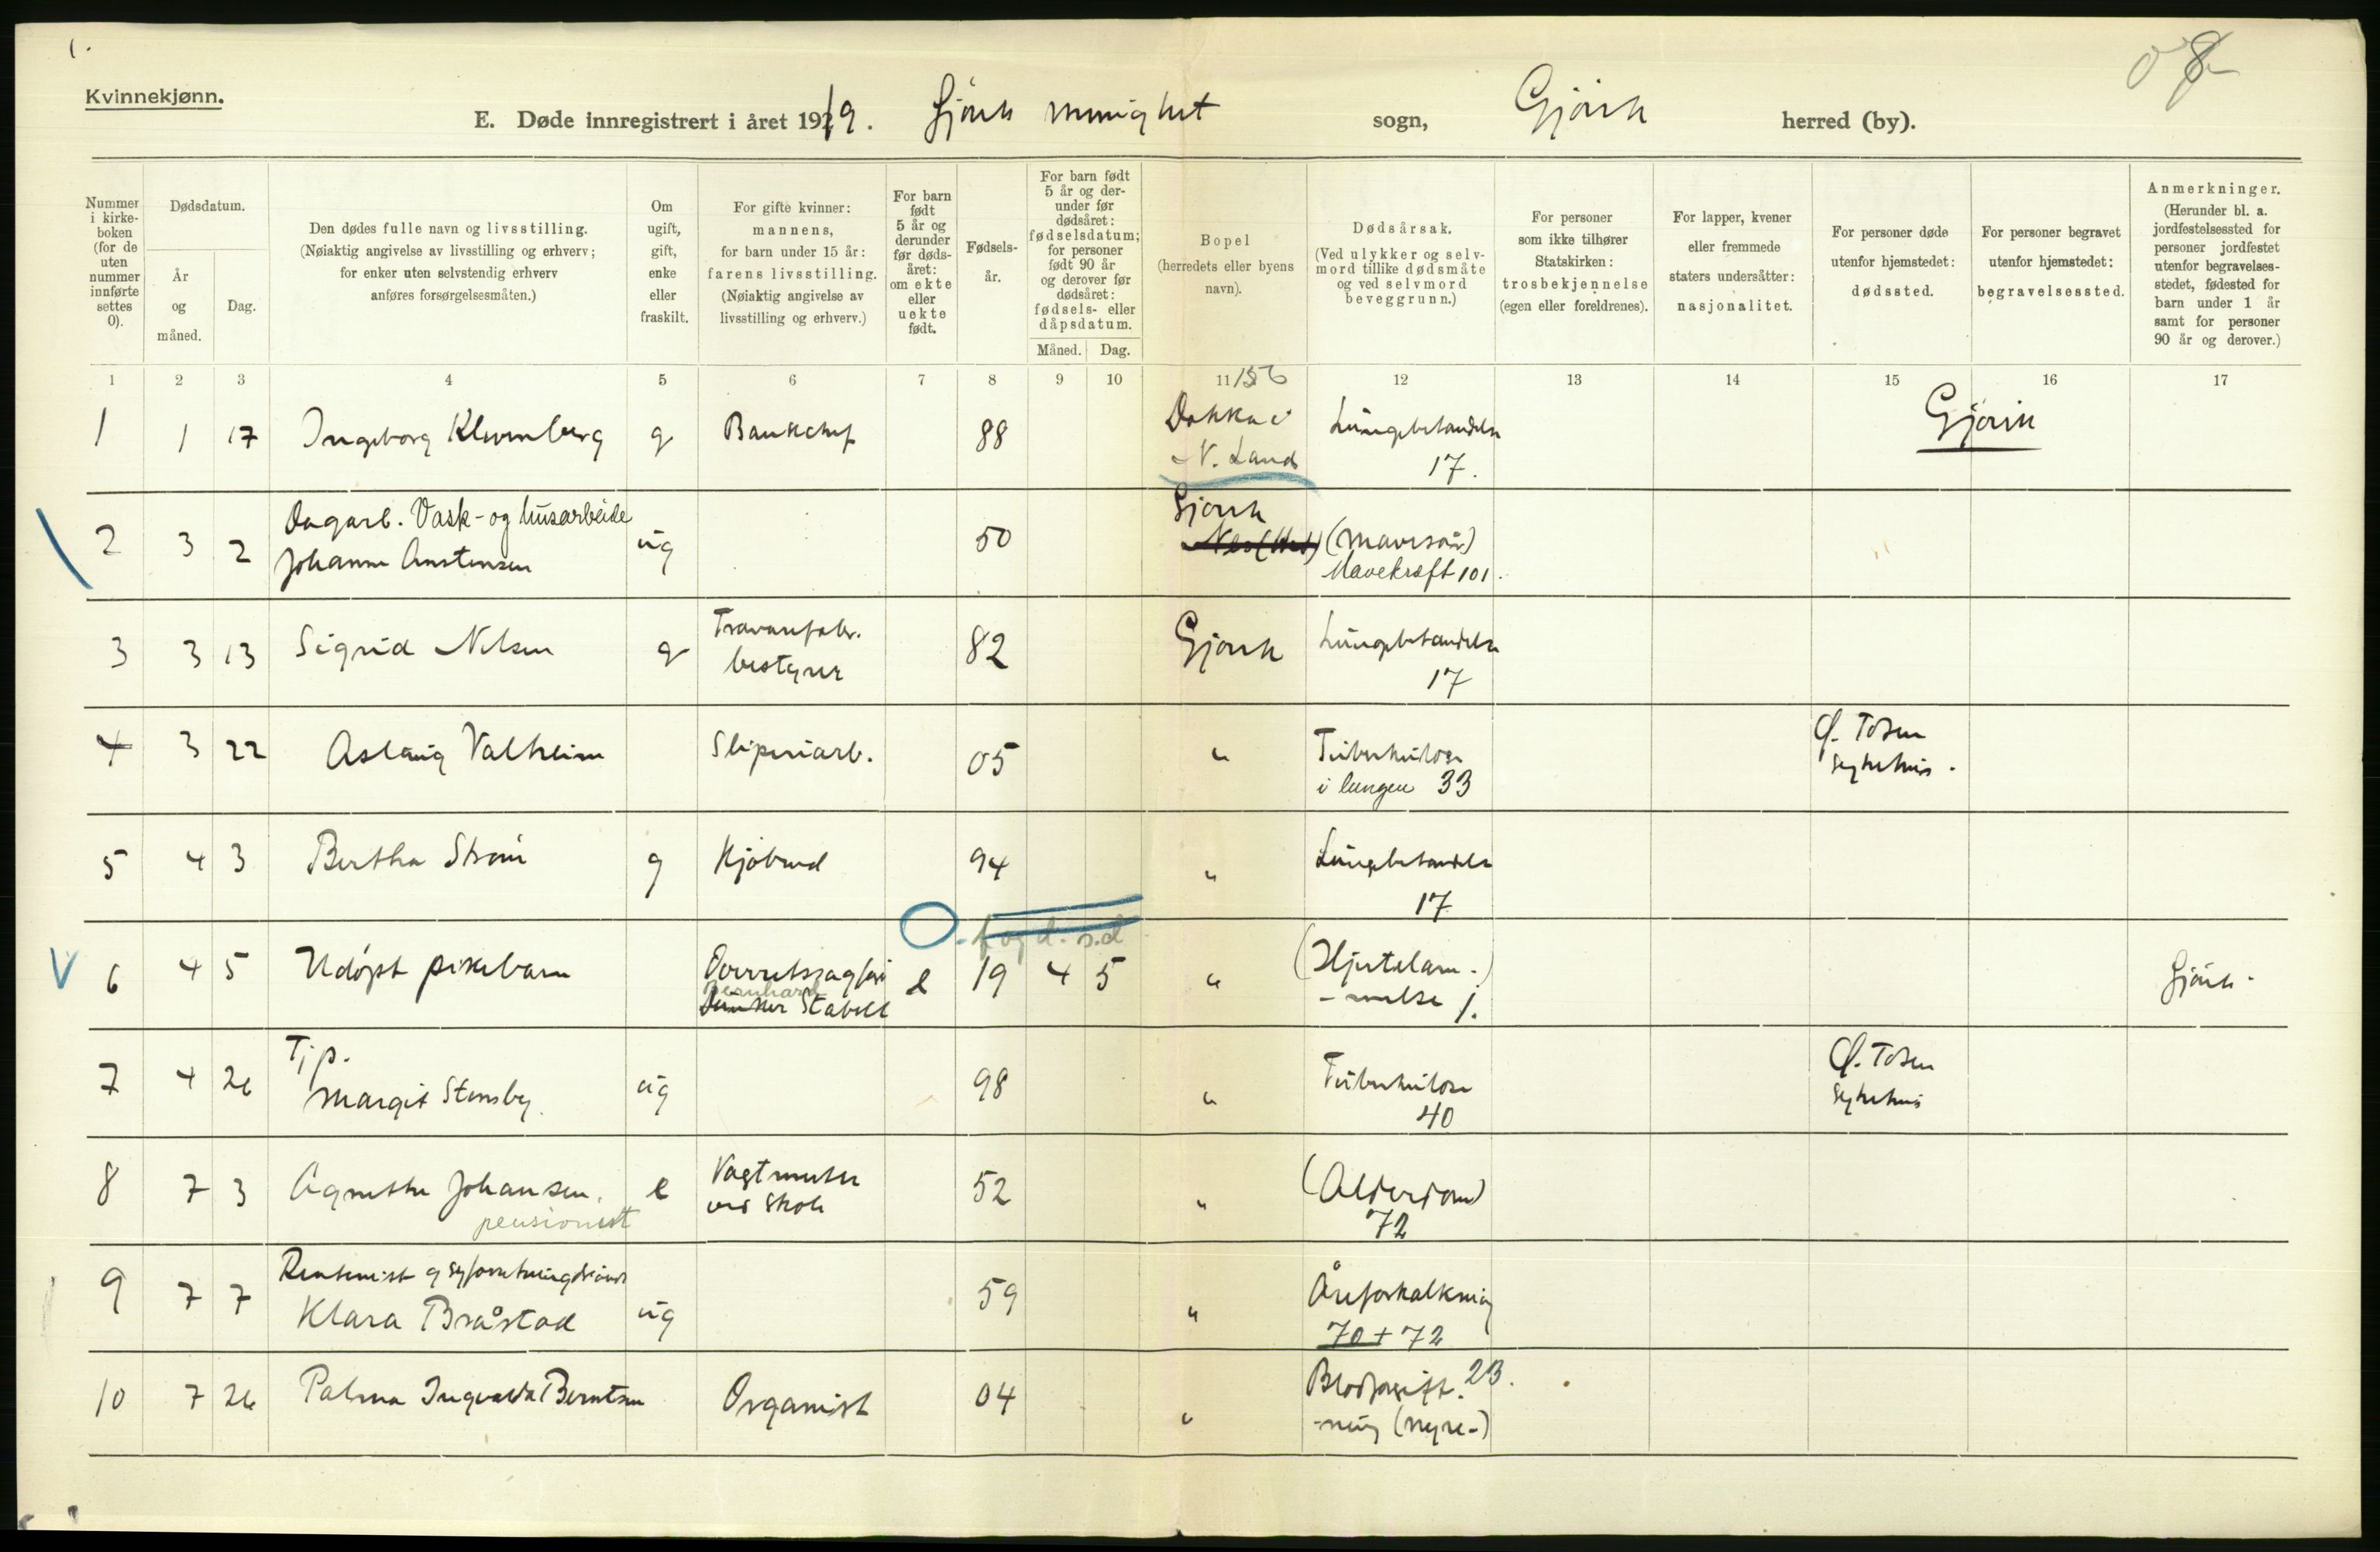 Kvinnekjønn.
E. Døde innregistrert i året 1919. Gjøvik menighet sogn, Gjøvik herred (by).
Nummer i kirke- boken (for de uten nummer innførte settes 0).
Dødsdatum.
År og måned.
Dag.
Den dødes fulle navn og livsstilling.
(Nøiaktig angivelse av livsstilling og erhverv;
for enker uten selvstendig erhverv
anføres forsørgelsesmåten.)
Om ugift, gift, enke eller fraskilt.
For gifte kvinner:
mannens,
for barn under 15 år:
farens livsstilling.
(Nøiaktig angivelse av
livsstilling og erhverv.)
For barn født 5 år og derunder før døds- året: om ekte eller uekte født.
Fødsels- år.
For barn født 5 år og der- under før dødsåret: fødselsdatum; for personer født 90 år og derover før dødsåret: fødsels- eller dåpsdatum.
Måned. Dag.
Bopel
(herredets eller byens
navn).
Dødsårsak.
(Ved ulykker og selv-
mord tillike dødsmåte
og ved selvmord
beveggrunn.)
For personer
som ikke tilhører
Statskirken:
trosbekjennelse
(egen eller foreldrenes).
For lapper, kvener
eller fremmede
staters undersåtter:
nasjonalitet.
For personer døde
utenfor hjemstedet:
dødssted.
For personer begravet
utenfor hjemstedet:
begravelsessted.
Anmerkninger.
(Herunder bl. a.
jordfestelsessted for
personer jordfestet
utenfor begravelses-
stedet, fødested for
barn under 1 år
samt for personer
90 år og derover.)
1 2 3 4 5 6 7 8 9 10 11 12 13 14 15 16 17
1 1 17 Ingeborg Klevenberg g Bankchef 88 Dokka i N. Land Lungebetændelse 17. Gjøvik
2 3 2 Dagarb. Vask- og husarbeide
Johanne Austensen ug 50 Gjøvik (Mavesår) Mavekræft 101.
3 3 13 Sigrid Nilsen g Trævarefabr. bestyrer 82 Gjøvik Lungebetændelse 17
4 3 22 Aslaug Valheim Sliperiarb. 05 " Tuberkulose i lungen 33 Ø. Toten sykehus.
5 4 3 Bertha Strøm g Kjøbmd 94 " Lungebetændelse 17
f og d. s.d
6 4 5 Udøpt pikebarn Overretssagfører Bernhard Stabell e 19 4 5 " (Hjertelam-
-melse) 1. Gjøvik.
7 4 26 Tjp.
Margit Stensby ug 98 " Tuberkulose 40 Ø. Toten sykehus
8 7 3 Agnethe Johansen. e Vagtmester ved skole 52 " (Alderdom) 72
pensionist
9 7 7 Klara Bråstad ug 59 " Åreforkalkning
70 + 72
10 7 26 Palma Ingvalda Berntsen Organist 04 " Blodforgift. 23.
-ning (nyre-)